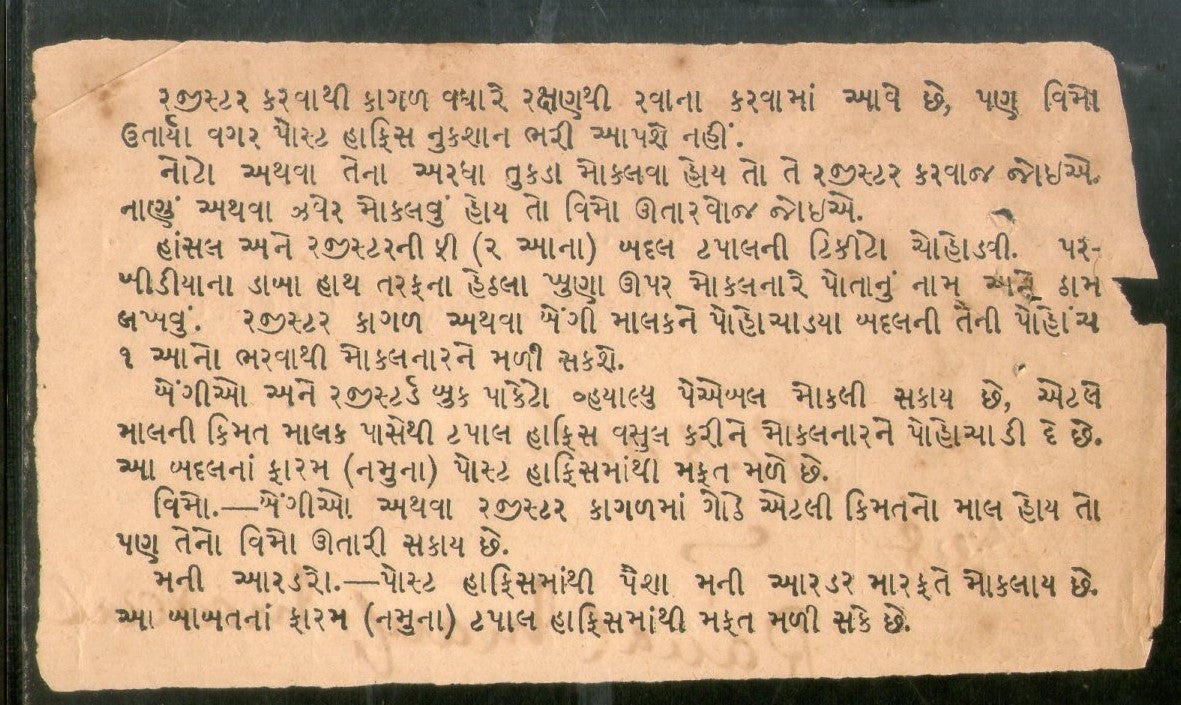 રજીસ્ટર કરવાથી કાગળ વધારે રક્ષણથી રવાના કરવામાં આવે છે, પણ વિમો
ઉતાર્યા વગર પોસ્ટ હાફિસ નુકશાન ભરી આપશે નહીં.
નોટો અથવા તેના અરધા તુકડા મોકલવા હોય તો તે રજીસ્ટર કરવાજ જોઇએ.
નાણું અથવા ઝવેર મોકલવું હોય તો વિમો ઊતારવોજ જોઇએ.
હાંસલ અને રજીસ્ટરની ફી (૨ આના) બદલ ટપાલની ટિકીટો ચોહોડવી. પર-
બીડીયાના ડાબા હાથ તરફના હેઠલા ખુણા ઊપર મોકલનારે પોતાનું નામ અને ઠામ
લખવું. રજીસ્ટર કાગળ અથવા બેંગી માલકને પોહોચાડયા બદલની તેની પોહોંચ
૧ આનો ભરવાથી મોકલનારને મળી સકશે.
બેંગીઓ અને રજીસ્ટર્ડ બુક પાકેટો વ્હયાલ્યુ પેએબલ મોકલી સકાય છે, એટલે
માલની કિમત માલક પાસેથી ટપાલ હાફિસ વસુલ કરીને મોકલનારને પોહોચાડી દે છે.
આ બદલનાં ફારમ (નમુના) પોસ્ટ હાફિસમાંથી મફત મળે છે.
વિમો.—બેંગીઓ અથવા રજીસ્ટર કાગળમાં ગોઠે એટલી કિમતનો માલ હોય તો
પણ તેનો વિમો ઊતારી સકાય છે.
મની આરડરો.—પોસ્ટ હાફિસમાંથી પૈશા મની આરડર મારફતે મોકલાય છે.
આ બાબતનાં ફારમ (નમુના) ટપાલ હાફિસમાંથી મફત મળી સકે છે.